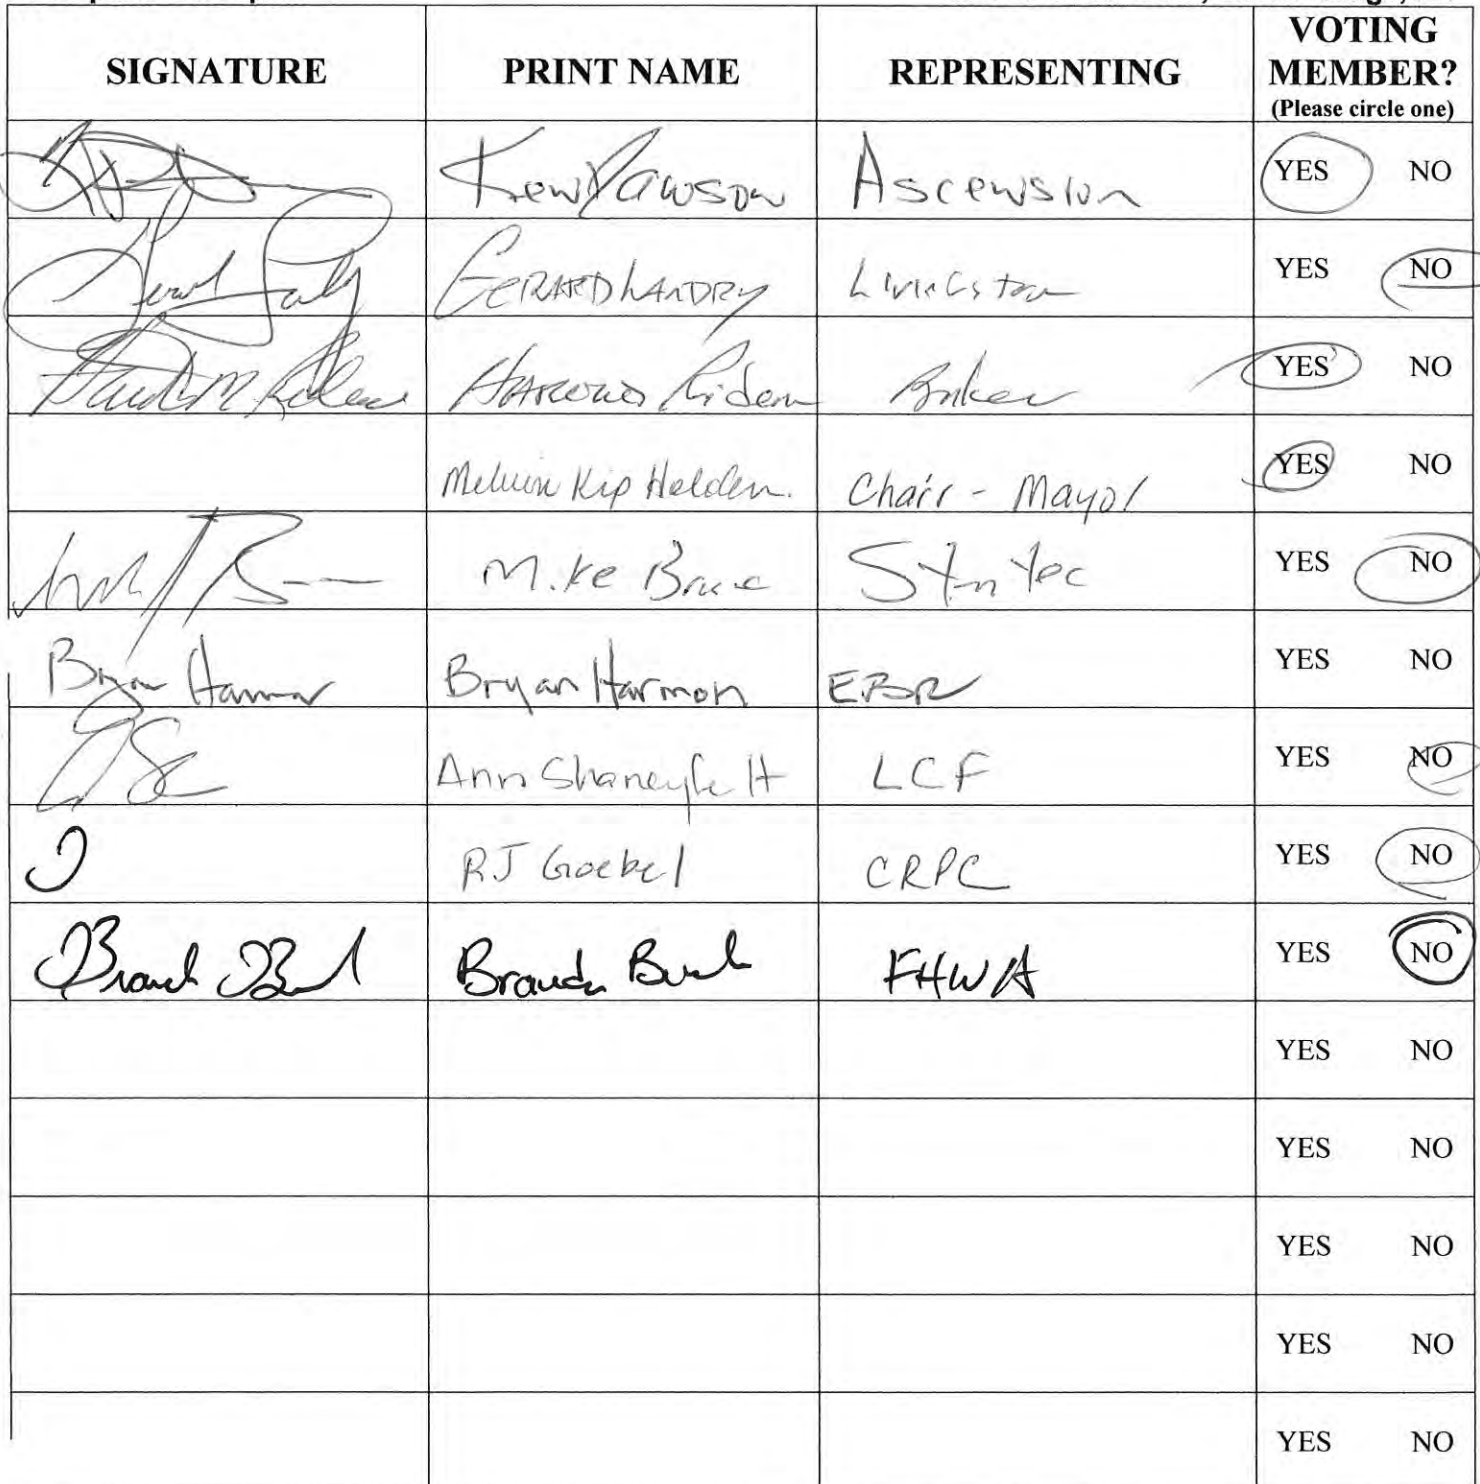 SIGNATURE PRINT NAME REPRESENTING VOTING MEMBER? (Please circle one)
Ken Dawson Ascension YES NO
GERARD LANDRY Livingston YES NO
Harold Rideau Baker YES NO
Melvin Kip Holden. Chair - Mayor YES NO
Mike Bruce Stantec YES NO
Bryan Harmon Bryan Harmon EBR YES NO
Ann Shaneyfelt LCF YES NO
RJ Goebel CRPC YES NO
FHWA YES NO
YES NO
YES NO
YES NO
YES NO
YES NO